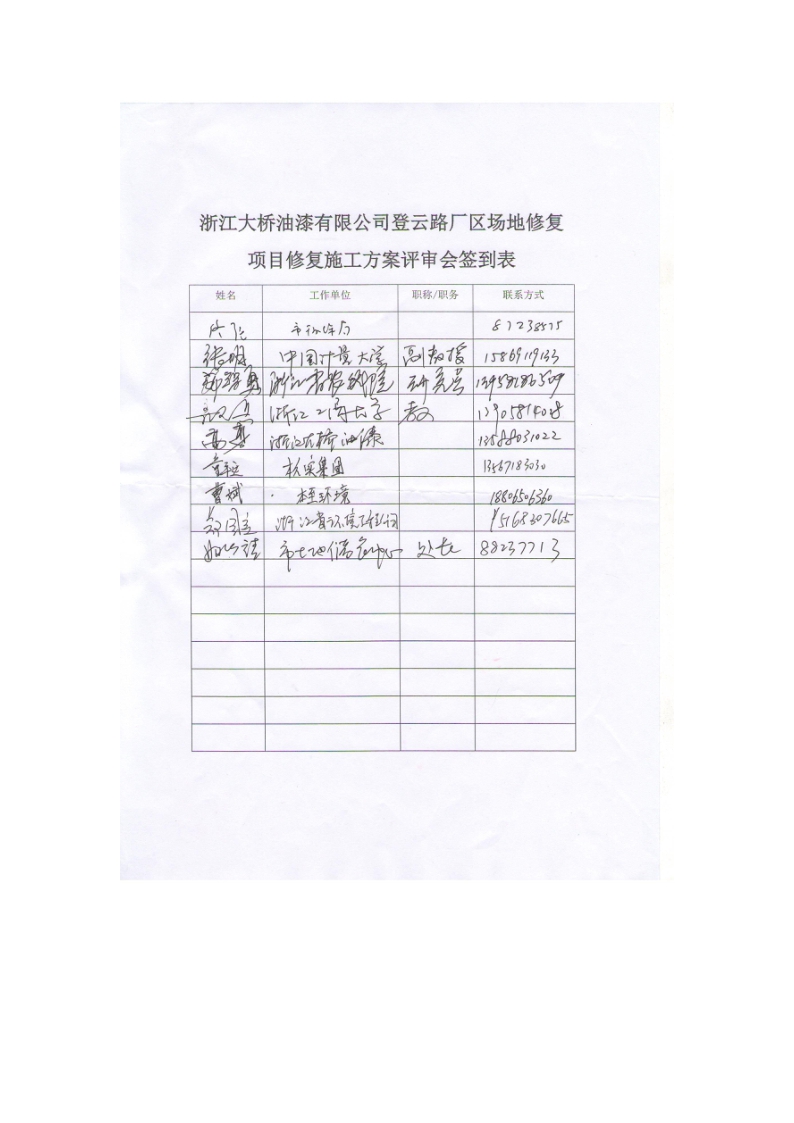 浙江大桥油漆有限公司登云路厂区场地修复
项目修复施工方案评审会签到表
姓名 工作单位 职称/职务 联系方式
市环保局 87238575
张明 中国计量大学 副教授 15869119133
浙江省农科院 研究员
浙江工商大学 教
浙江大桥油漆 13588031022
杭实集团 13567183030
曹斌 本至环境 18806506360
浙江省环境工程公司 15168307665
市土地储备中心 处长 88237713